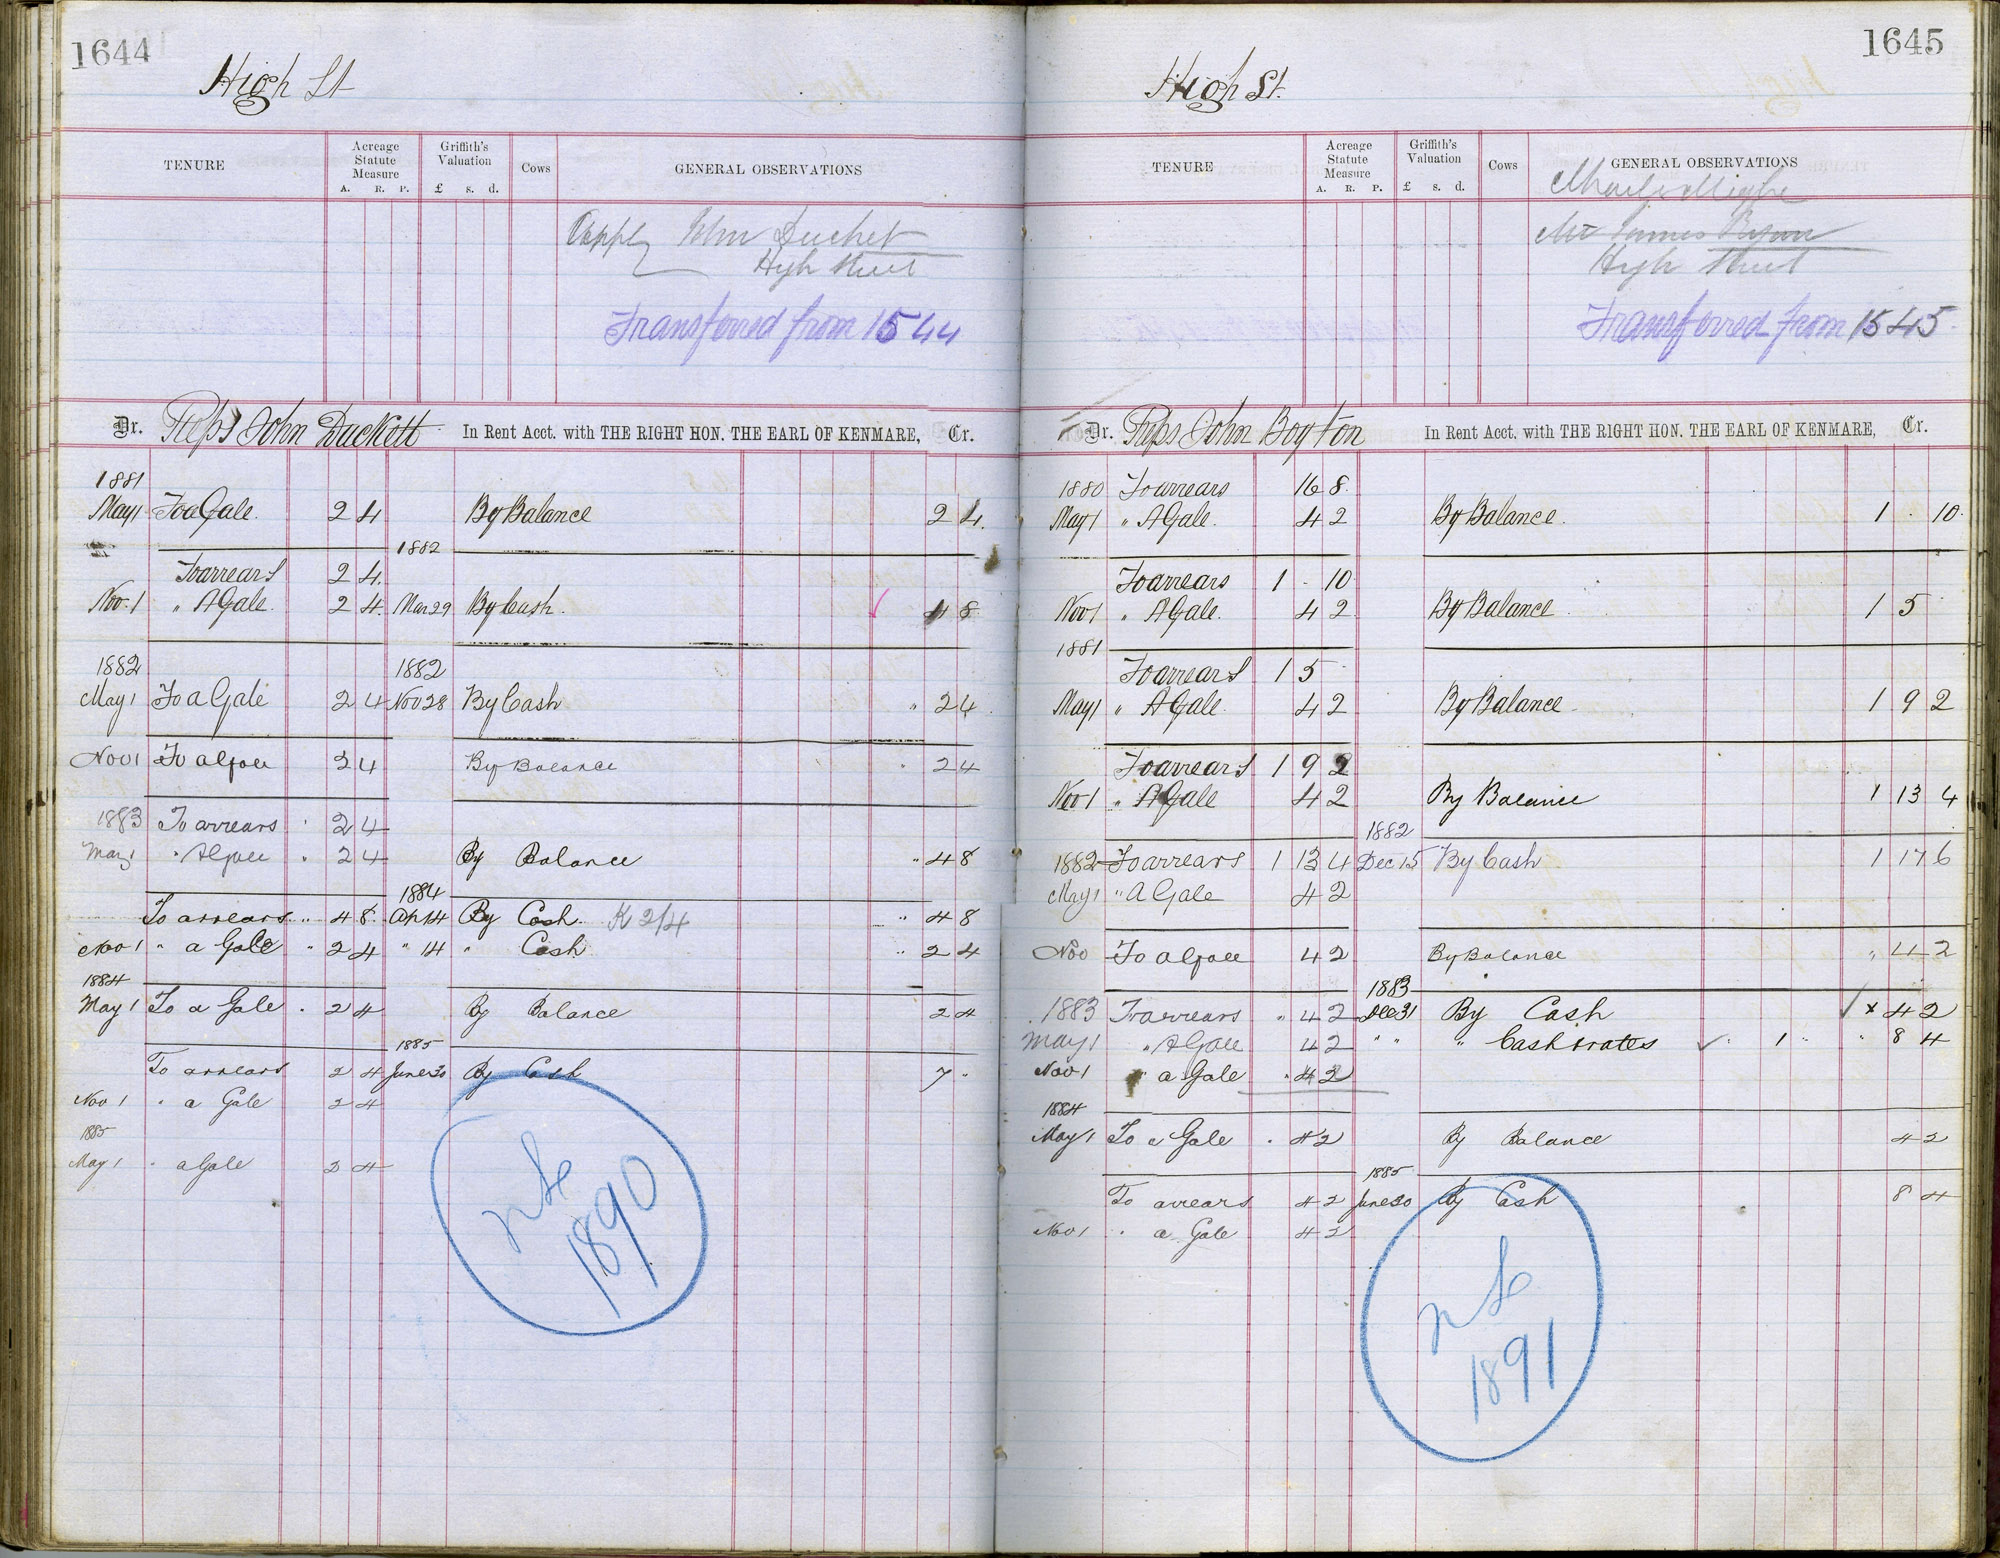 1644
High St
TENURE
Acreage Statute Measure
A. R. P.
Griffith's Valuation
£ s. d.
Cows
GENERAL OBSERVATIONS
John Duchet
High Street
Transferred from 1544
Dr. Reps John Duckett In Rent Acct. with THE RIGHT HON. THE EARL OF KENMARE, Cr.
1881
May 1 To a Gale. 2 4 By Balance 2 4.
1882
To arrears 2 4.
Nov. 1 " A Gale. 2 4. Mar 29 By Cash. 4 8
1882 1882
May 1 To a Gale 2 4 Nov 28 By Cash " 2 4
Nov 1 To a Gale 2 4 By Balance " 2 4
1883 To arrears " 2 4
May 1 " A Gale " 2 4 By Balance " 4 8
1884
To arrears " 4 8 Ap 14 By Cash K 2/4 " 4 8
Nov 1 " a Gale " 2 4 " 14 " Cash " 2 4
1884
May 1 To a Gale " 2 4 By Balance 2 4
1885
To arrears 2 4 June 30 By Cash 7 "
Nov 1 " a Gale 2 4
1885
May 1 " a Gale 2 4
1890
1645
High St.
TENURE
Acreage Statute Measure
A. R. P.
Griffith's Valuation
£ s. d.
Cows
GENERAL OBSERVATIONS
Mr James Ryan
High Street
Transferred from 1545
Dr. Reps John Boyton In Rent Acct. with THE RIGHT HON. THE EARL OF KENMARE, Cr.
1880 To arrears 16 8.
May 1 " A Gale. 4 2 By Balance. 1 . 10.
To arrears 1 - 10
Nov 1 " A Gale. 4 2 By Balance 1 5
1881
To arrears 1 5
May 1 " A Gale. 4 2 By Balance 1 9 2
To arrears 1 9 2
Nov 1 " A Gale 4 2 By Balance 1 13 4
1882
1882 To arrears 1 13 4 Dec 15 By Cash 1 17 6
May 1 " A Gale 4 2
Nov To a Gale 4 2 By Balance " 4 2
1883
1883 To arrears " 4 2 Dec 31 By Cash / x 4 2
May 1 " A Gale 4 2 " " " Cash & rates ✓ " 1 " " 8 4
Nov 1 " a Gale " 4 2
1884
May 1 To a Gale " 4 2 By Balance 4 2
1885
To arrears 4 2 June 30 By Cash 8 4
Nov 1 " a Gale 4 2
1891